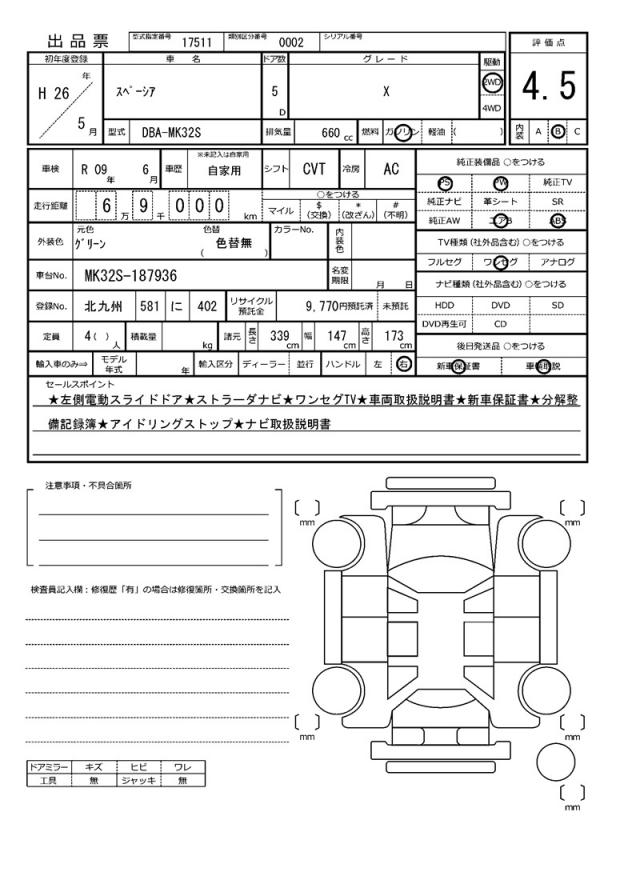 出品票 型式指定番号 17511 類別区分番号 0002 シリアル番号
評価点
4.5
内装 A B C
初年度登録 車名 ドア数 グレード 駆動
H 26 年 5 月 スペーシア 5 D X 2WD 4WD
型式 DBA-MK32S 排気量 660 cc 燃料 ガソリン 軽油 ( )
車検 R 09 年 6 月 車歴 ※未記入は自家用 自家用 シフト CVT 冷房 AC
走行距離 6 万 9 千 0 0 0 km
○をつける
マイル $ (交換) * (改ざん) # (不明)
外装色 元色 グリーン 色替 ( 色替無 ) カラーNo. 内装色
車台No. MK32S-187936 名変期限 月 日
登録No. 北九州 581 に 402 リサイクル預託金 9,770円預託済 未預託
定員 4( ) 人 積載量 kg 諸元 長さ 339 cm 幅 147 cm 高さ 173 cm
輸入車のみ⇒ モデル年式 年 輸入区分 ディーラー 並行 ハンドル 左 右
純正装備品 ○をつける
PS PW 純正TV
純正ナビ 革シート SR
純正AW エアB ABS
TV種類 (社外品含む) ○をつける
フルセグ ワンセグ アナログ
ナビ種類 (社外品含む) ○をつける
HDD DVD SD
DVD再生可 CD
後日発送品 ○をつける
新車保証書 車輌取説
セールスポイント
★左側電動スライドドア★ストラーダナビ★ワンセグTV★車両取扱説明書★新車保証書★分解整
備記録簿★アイドリングストップ★ナビ取扱説明書
注意事項・不具合箇所
検査員記入欄：修復歴「有」の場合は修復箇所・交換箇所を記入
ドアミラー キズ ヒビ ワレ
工具 無 ジャッキ 無
mm
mm
mm
mm
mm